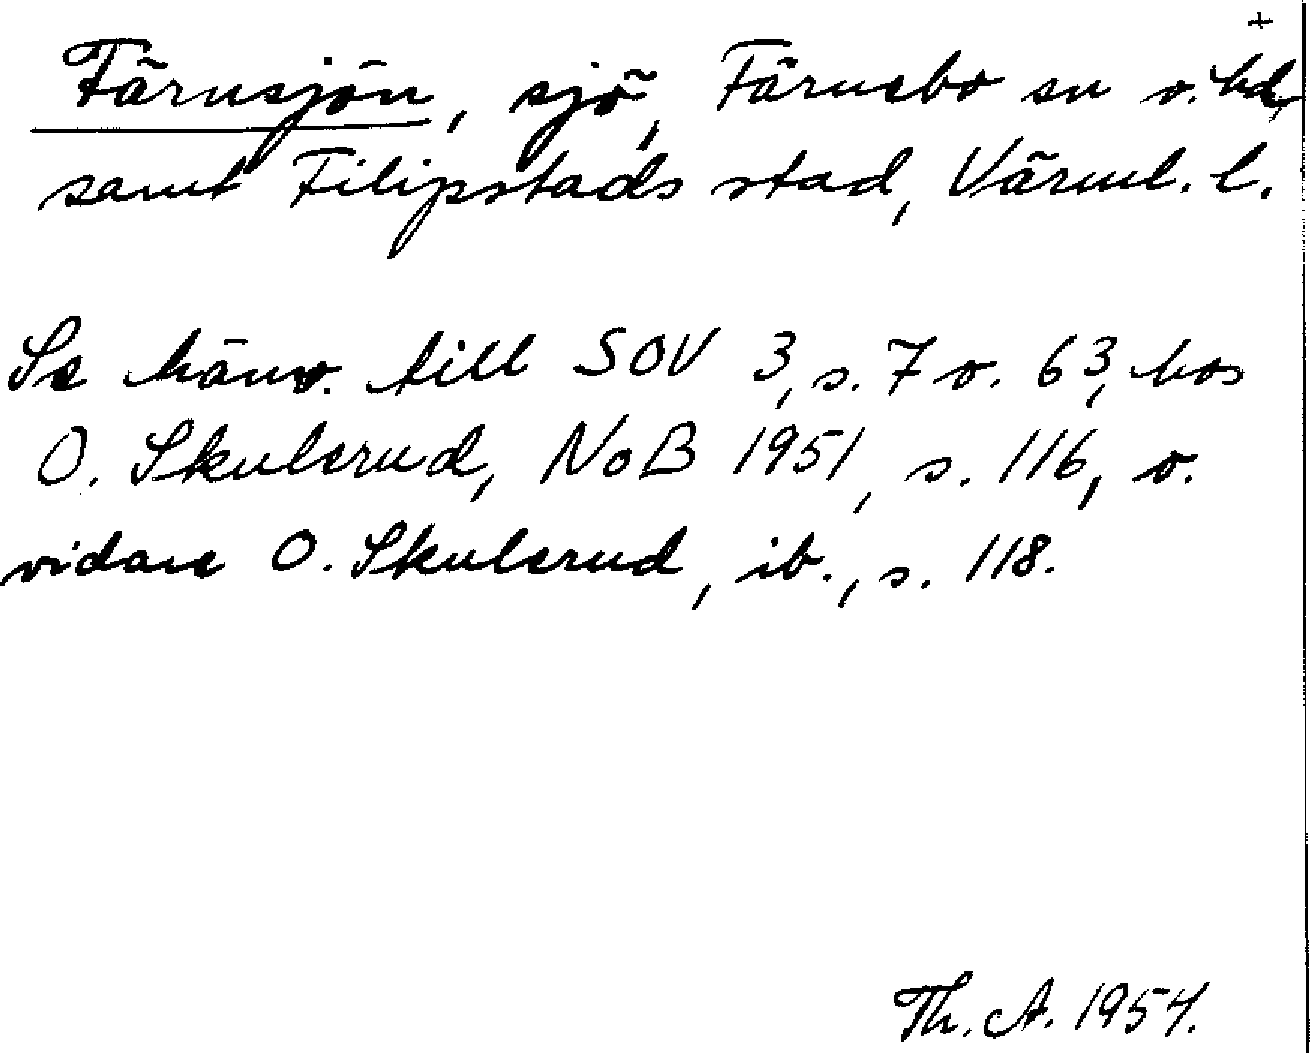 +
Färnsjön, sjö, Färnebo sn o. hd,
samt Filipstads stad, Värml. l.
Se hänv. till SOV 3, s. 7 o. 63, hos
O. Skulerud, NoB 1951, s. 116, o.
vidare O. Skulerud, ib., s. 118.
Th. A. 1954.